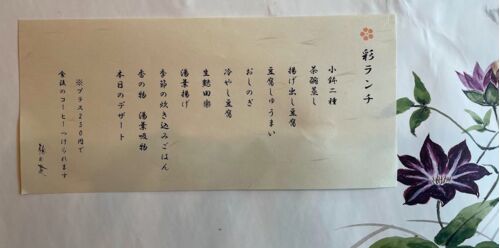 彩ランチ
小鉢二種
茶碗蒸し
揚げ出し豆腐
豆腐しゅうまい
おしのぎ
冷やし豆腐
生麩田楽
湯葉揚げ
季節の炊き込みごはん
香の物　湯葉吸物
本日のデザート
※プラス250円で
食後のコーヒーつけられます